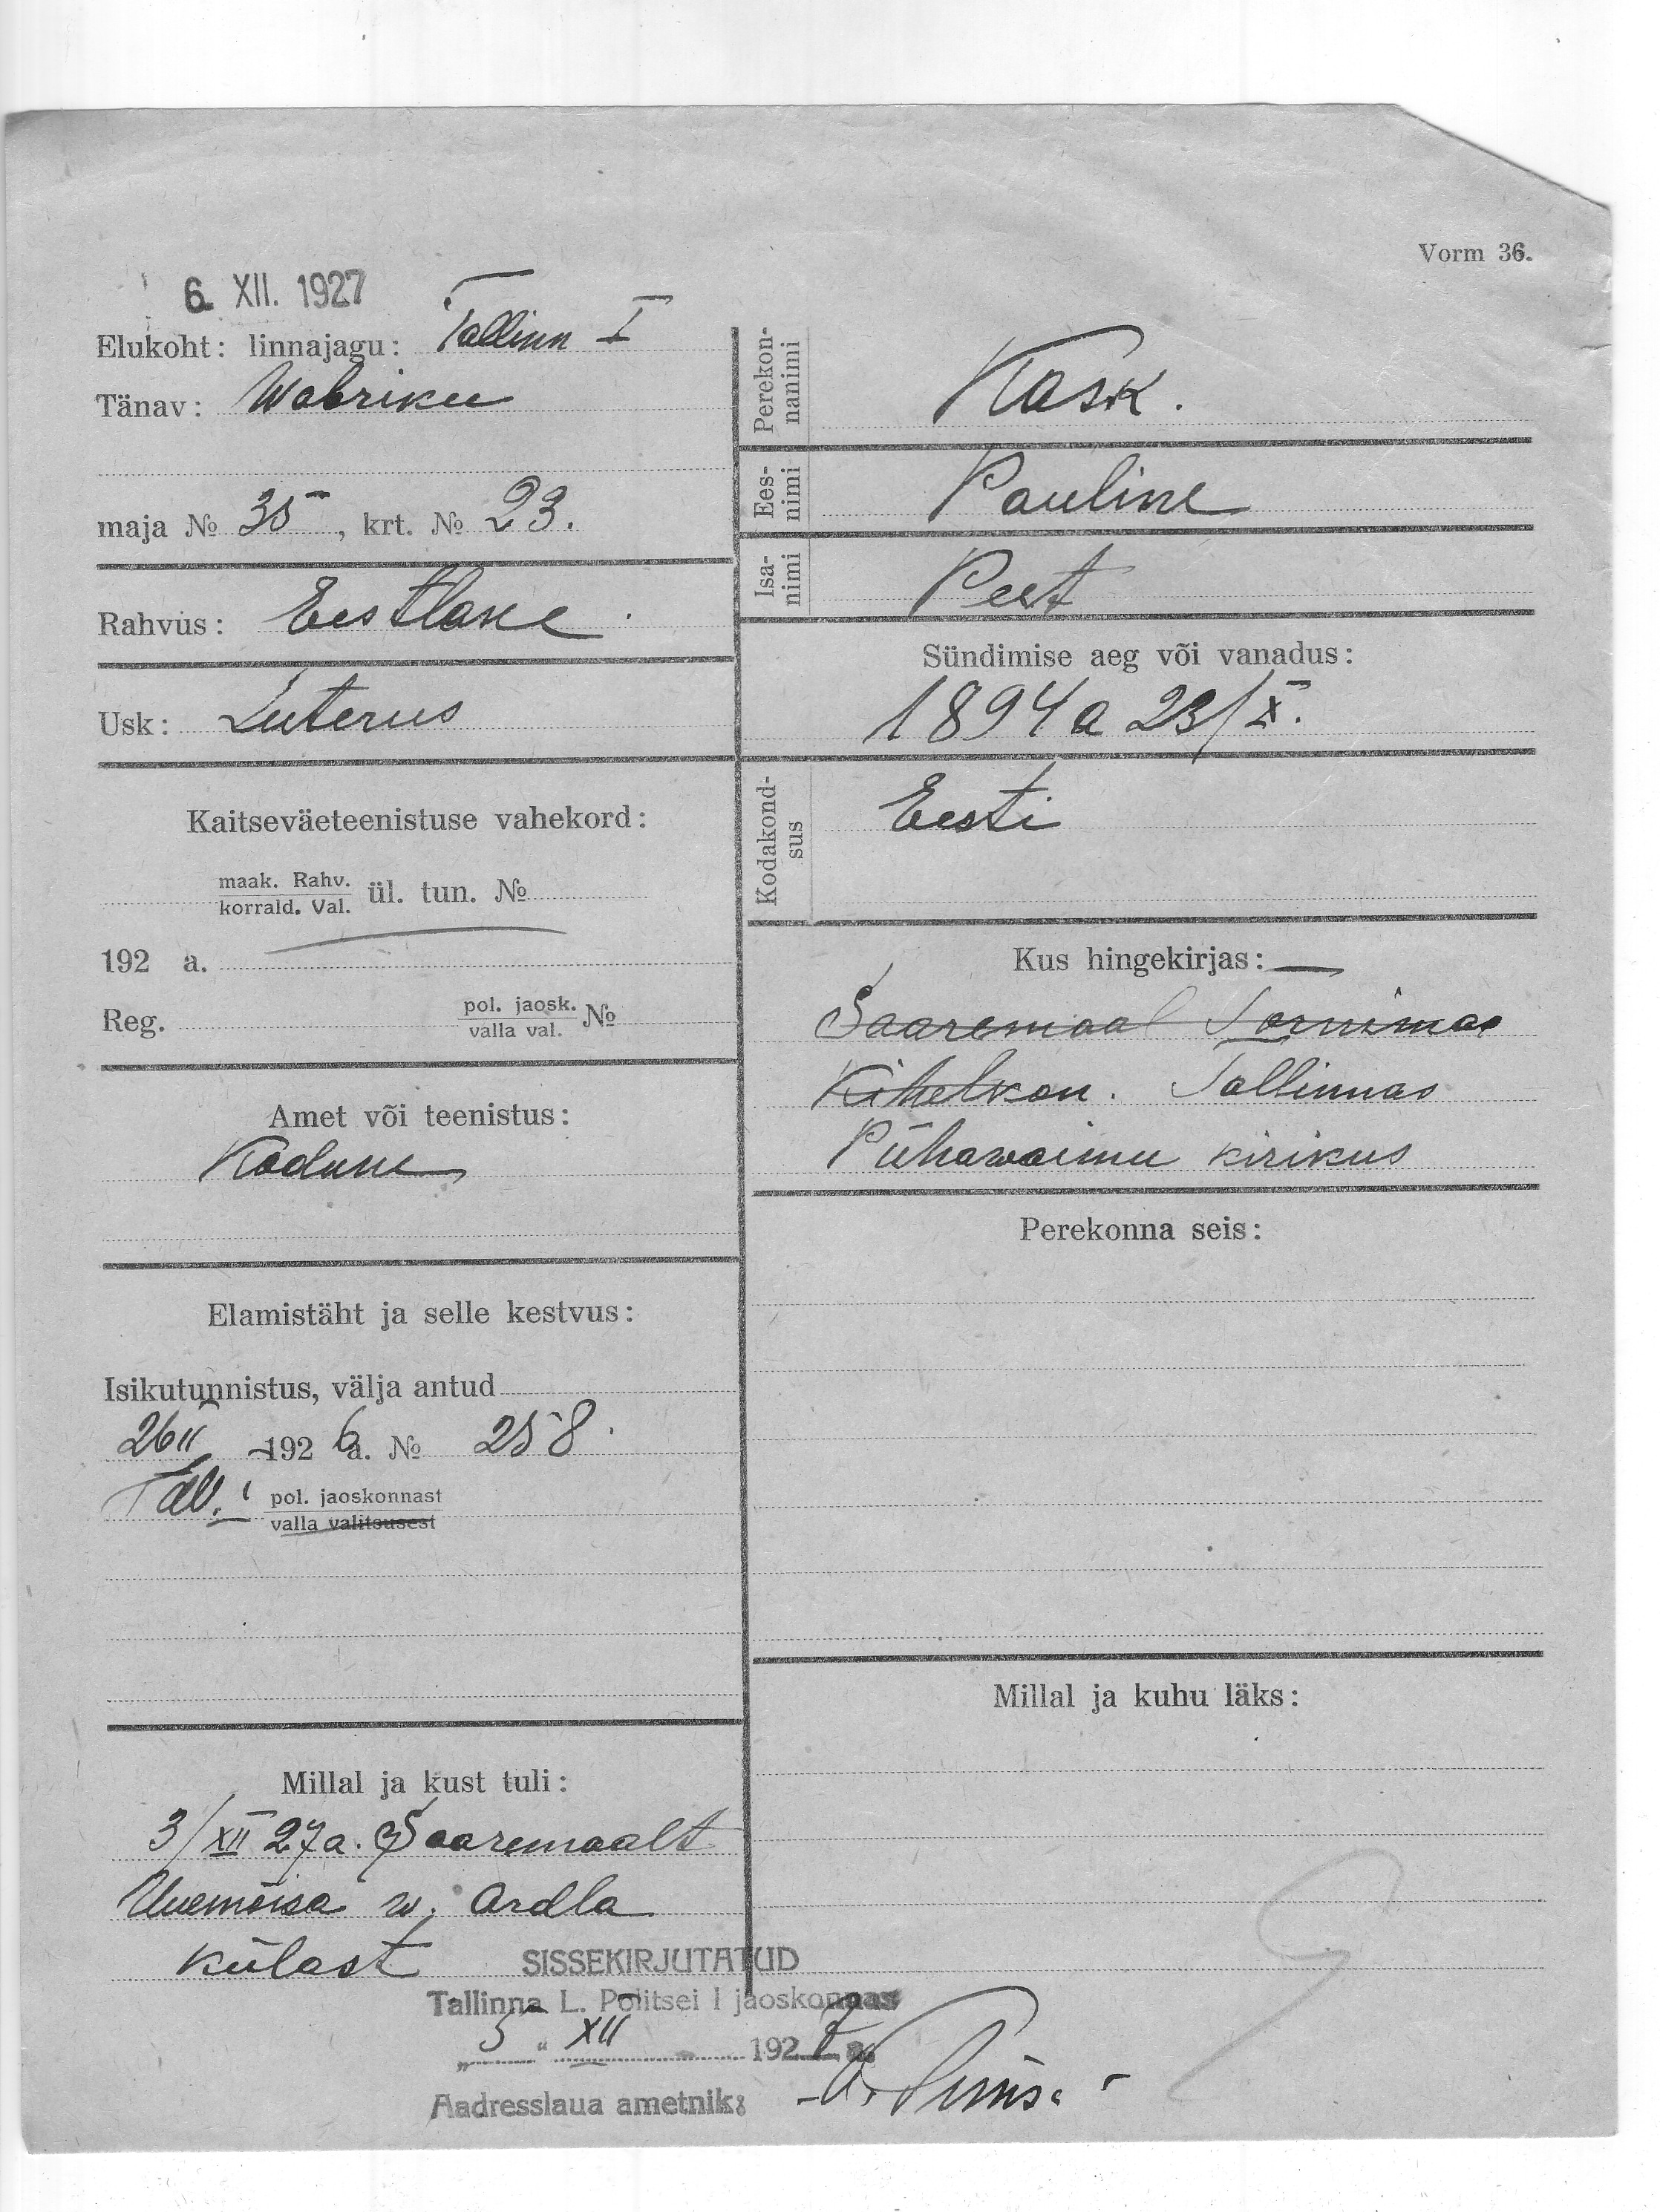 Vorm 36.
6. XII. 1927
Elukoht: linnajagu: Tallinn I
Tänav: Wabriku
maja № 35, krt. № 23.
Rahvus: Eestlane
Usk: Luterus
Kaitseväeteenistuse vahekord:
maak. Rahv.
korrald. Val. ül. tun. №
192 a.
Reg. pol. jaosk.
valla val. №
Amet või teenistus:
Kodune
Elamistäht ja selle kestvus:
Isikutunnistus, välja antud
26 II 1926 a. № 258.
Tall. I pol. jaoskonnast
valla valitsusest
Millal ja kust tuli:
3/XII 27 a. Saaremaalt
Uuemõisa w. Ardla
külast
Perekonnanimi
Kask.
Eesnimi
Pauline
Isanimi
Peet
Sündimise aeg või vanadus:
1894 a 23/X.
Kodakondsus
Eesti
Kus hingekirjas:
Saaremaal Tornimae
Kihelkon. Tallinnas
Pühawaimu kirikus
Perekonna seis:
Millal ja kuhu läks:
SISSEKIRJUTATUD
Tallinna L. Politsei I jaoskonnas
„5“ XII 1927 a.
Aadresslaua ametnik: